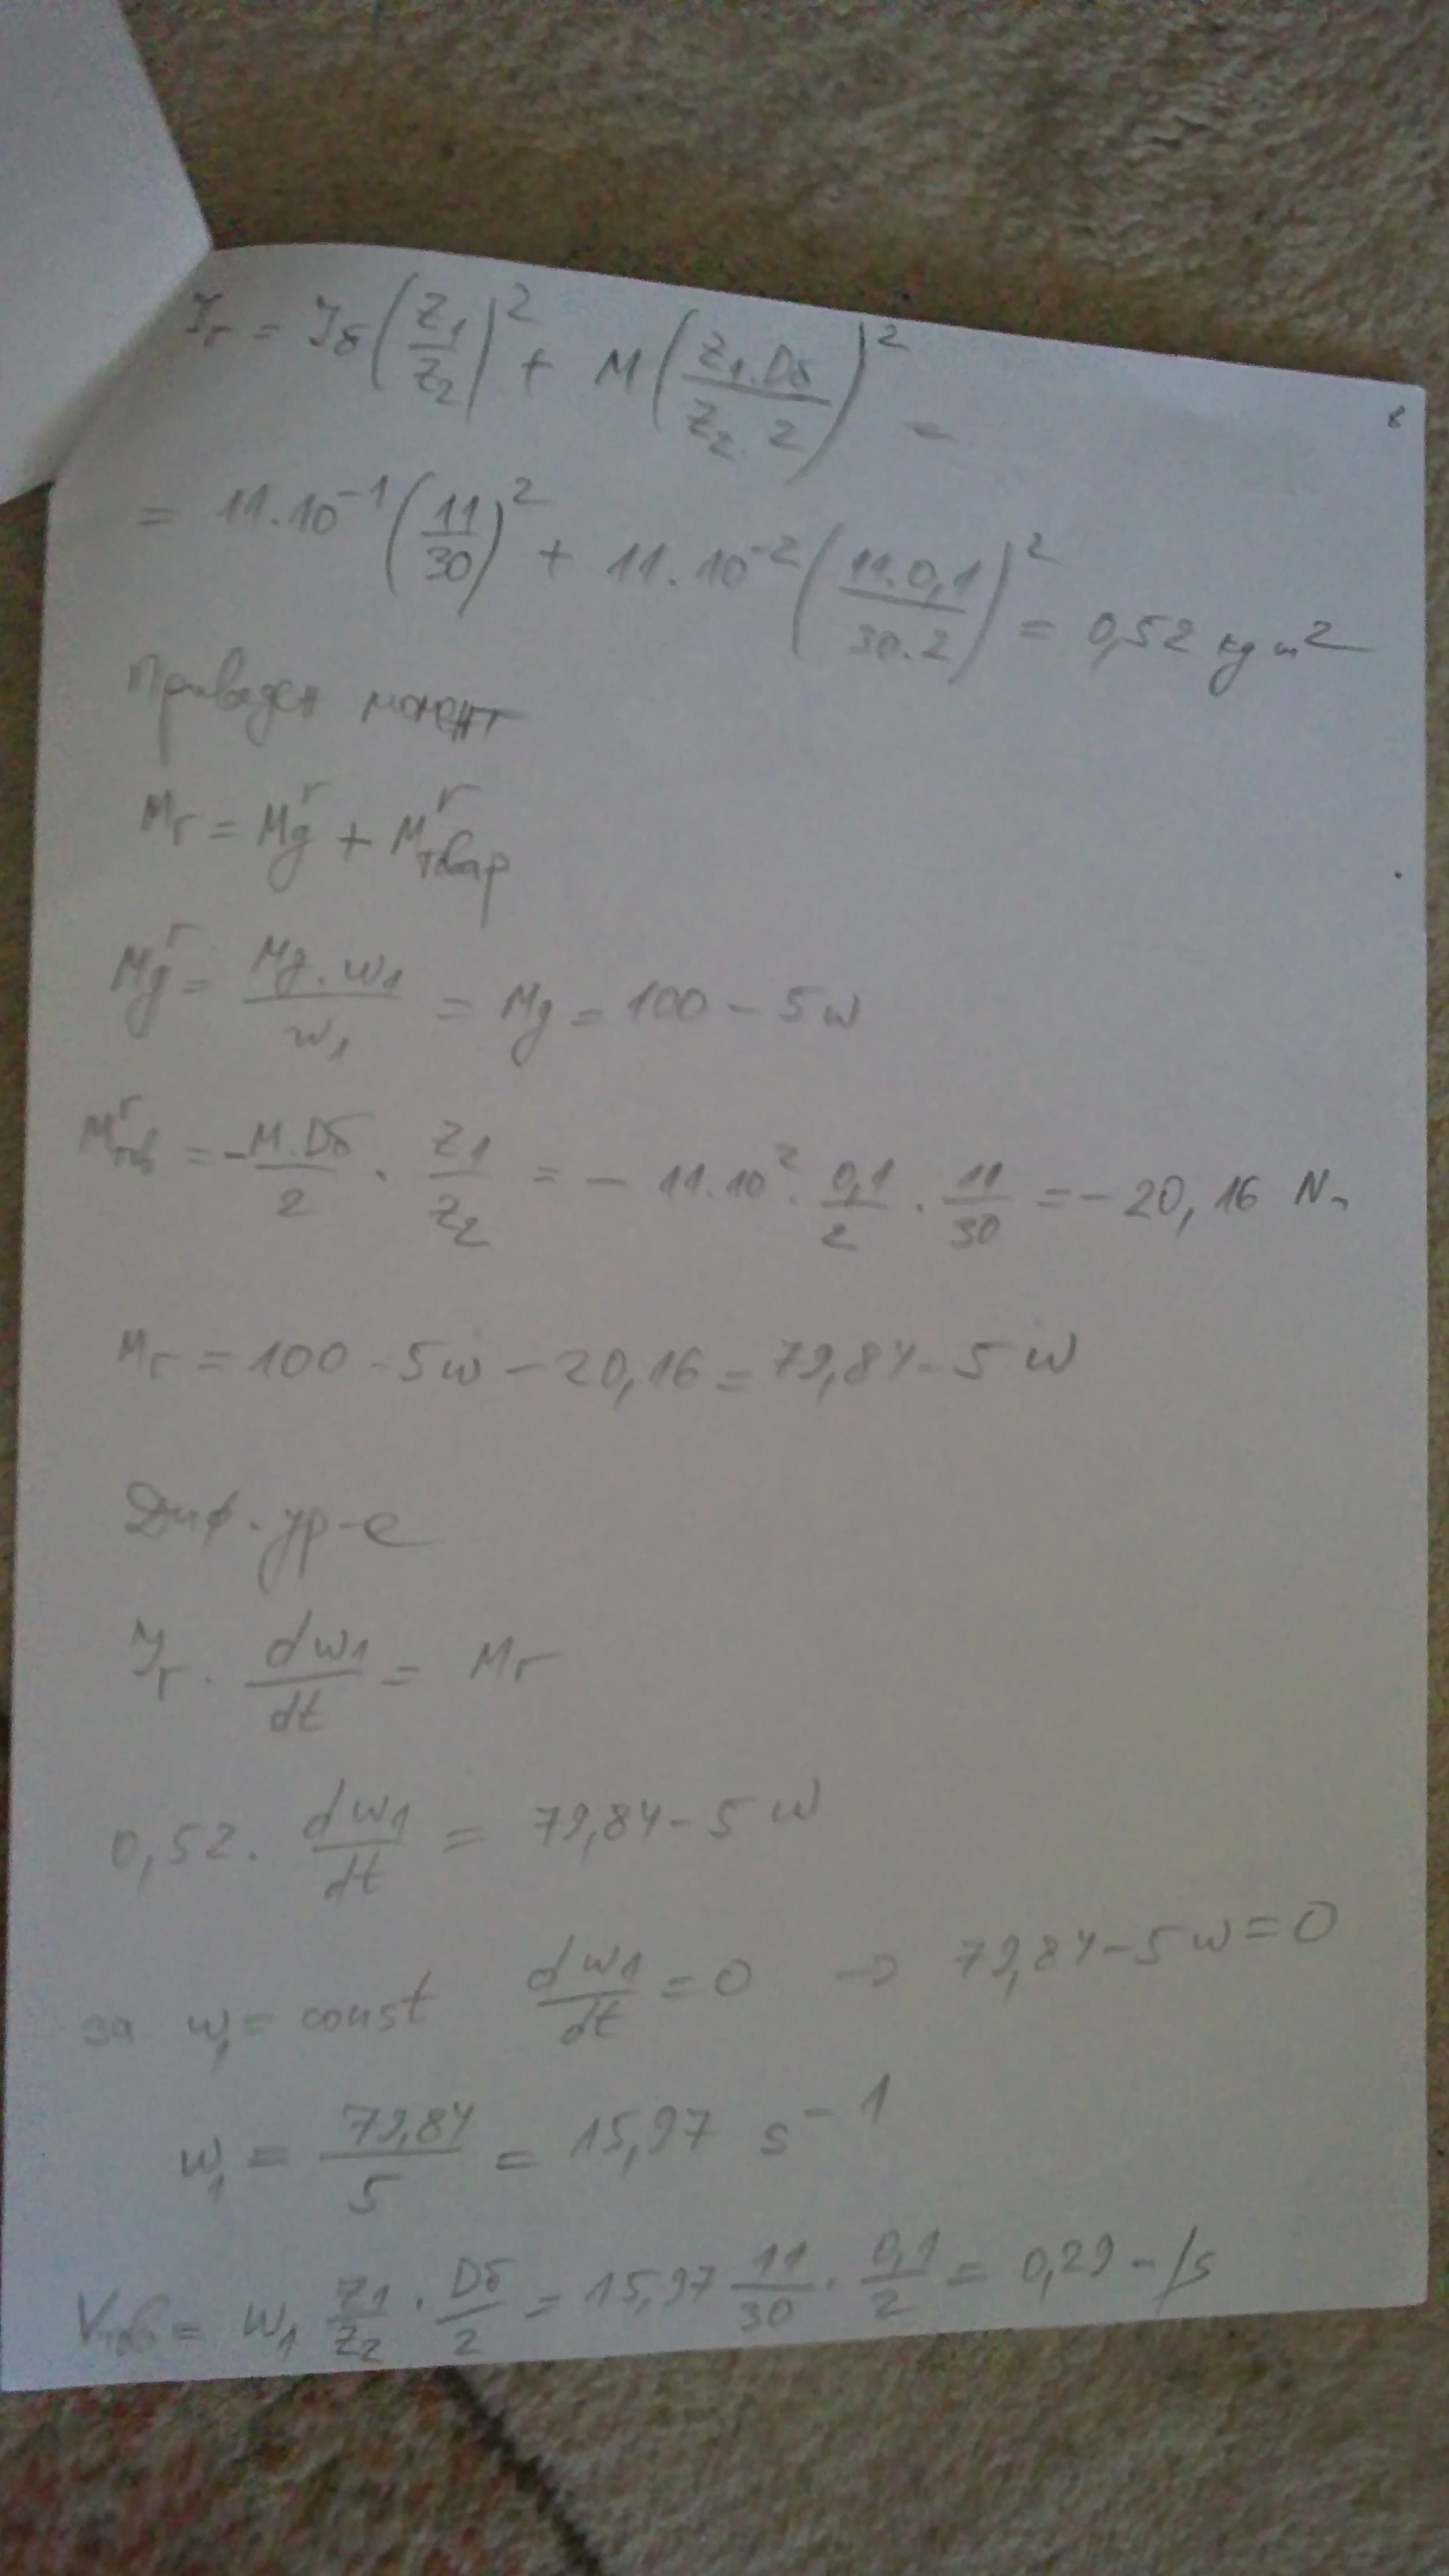 8
Jr = Jб (z1/z2)² + M (z1.Dб/z2.2)² =
= 11.10⁻¹ (11/30)² + 11.10⁻² (11.0,1/30.2)² = 0,52 kg m²
Приведен момент
Mr = Mgʳ + Mʳтовар
Mgʳ = Mg.w1/w1 = Mg = 100 - 5w
Mʳтов = -M.Dб/2 . z1/z2 = - 11.10² . 0,1/2 . 11/30 = - 20,16 Nm
Mr = 100 - 5w - 20,16 = 79,84 - 5w
Диф. ур-е
Jr . dw1/dt = Mr
0,52 . dw1/dt = 79,84 - 5w
за w1 = const dw1/dt = 0 → 79,84 - 5w = 0
w1 = 79,84/5 = 15,97 s⁻¹
Vтов = w1 z1/z2 . Dб/2 = 15,97 11/30 . 0,1/2 = 0,29 m/s